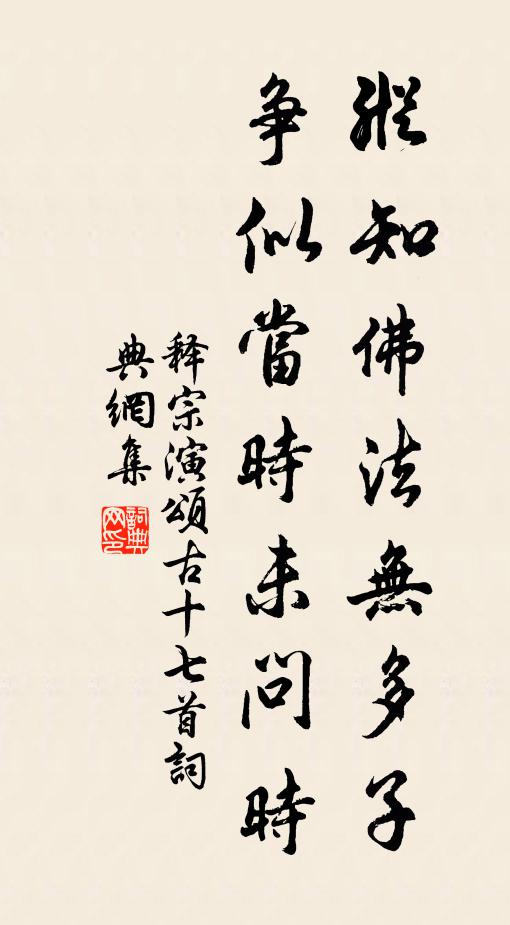 縱知佛法無多子
争似當時未問時
释宗演頌古十七首詞
典網集
詞典网印